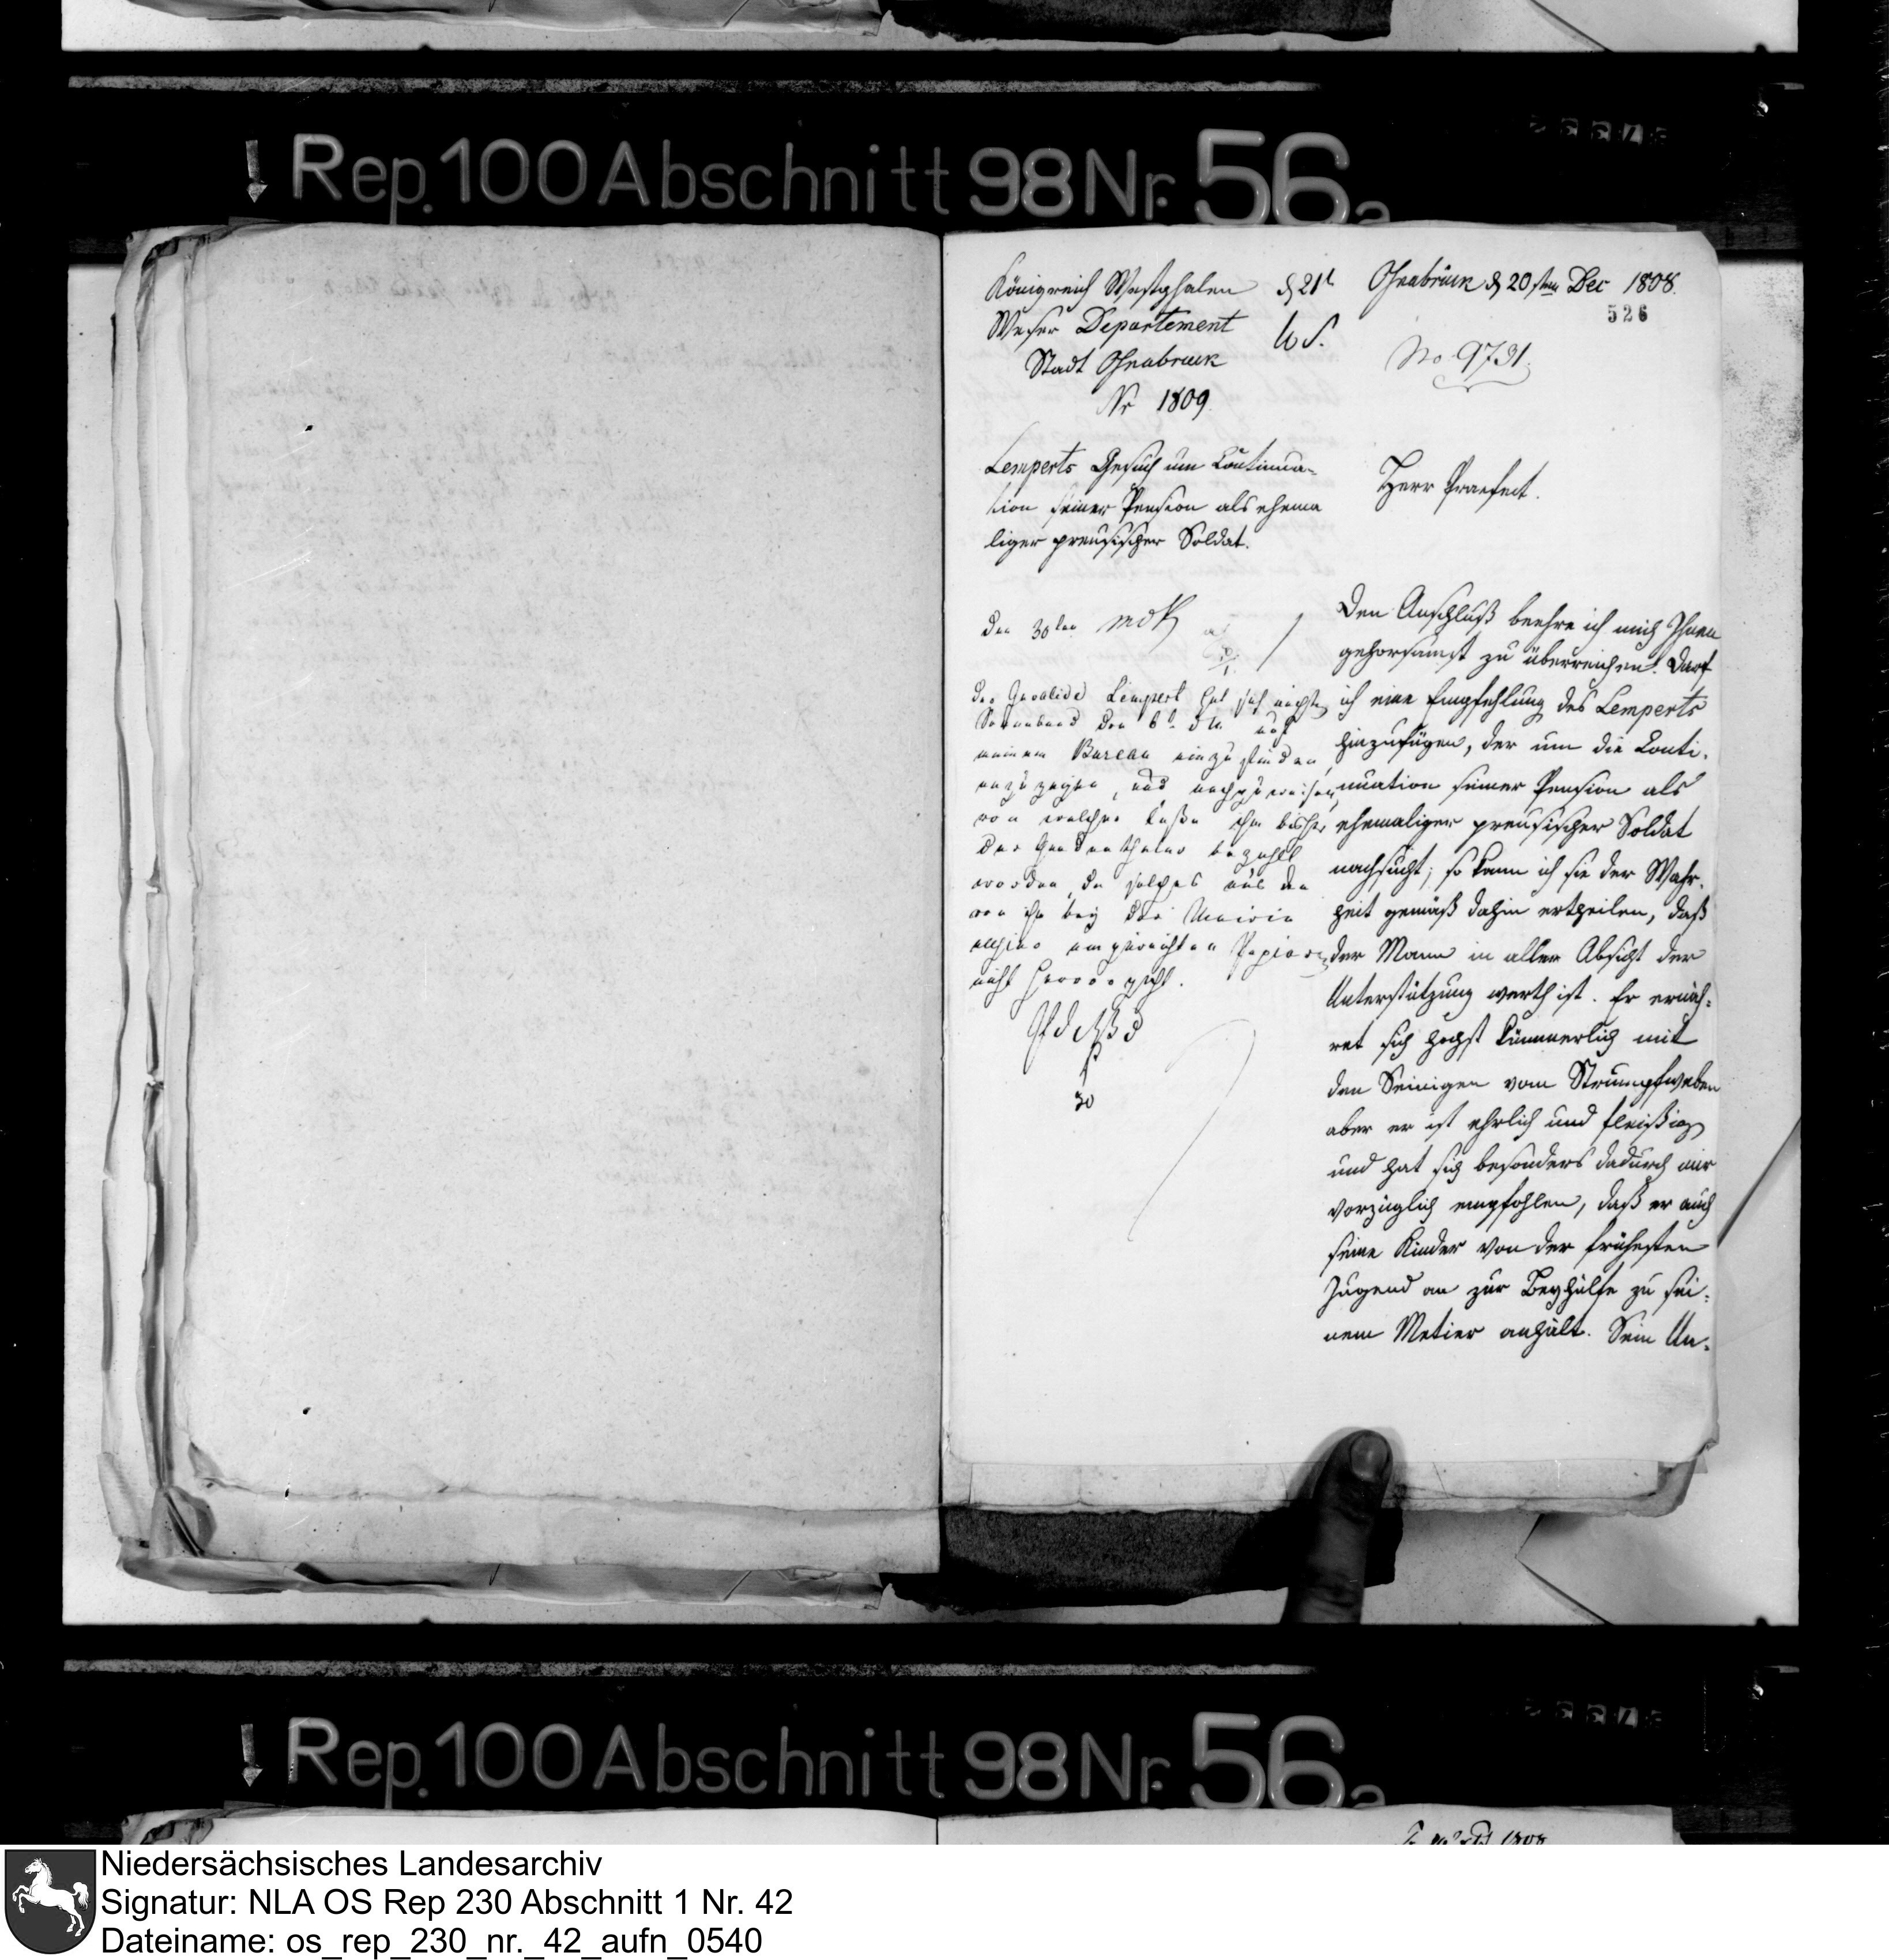 Rep. 100 Abschnitt 98 Nr. 56a
Königreich Westphalen
Weser Departement
Stadt Osnabruck
Nr 1809.
d 21t
Osnabrück d 20sten Dec 1808.
526
No 9731.
Lemperts Gesuch um Continua-
tion seiner Pension als ehema
liger preusischer Soldat.
Herr Praefect.
den 30ten
Der Invalide Lempert hat sich nächsten
Sonnabend den 6t auf
meinem Bureau einzufinden,
anzuzeigen, und nachzuweisen,
von welcher Casse ihm bisher
der Gnadenthaler bezahlt
worden, da solches aus den
von ihm bey der Mairie
eingereichten Papieren
nicht hervorgeht.
30
Den Anschluß beehre ich mich Ihnen
gehorsamst zu überreichen. Darf
ich eine Empfehlung des Lemperts
hinzufügen, der um die Conti-
nuation seiner Pension als
ehemaliger preusischer Soldat
nachsucht; so kann ich sie der Wahr-
heit gemäß dahin ertheilen, daß
der Mann in aller Absicht der
Unterstützung werth ist. Er ernäh-
ret sich höchst kümmerlich mit
den Seinigen vom Strumpfweben
aber er ist ehrlich und fleißig
und hat sich besonders dadurch mir
vorzüglich empfohlen, daß er auch
seine Kinder von der frühesten
Jugend an zur Beyhülfe zu sei-
nem Metier anhält. Sein Un-
Rep. 100 Abschnitt 98 Nr. 56a
Niedersächsisches Landesarchiv
Signatur: NLA OS Rep 230 Abschnitt 1 Nr. 42
Dateiname: os_rep_230_nr._42_aufn_0540